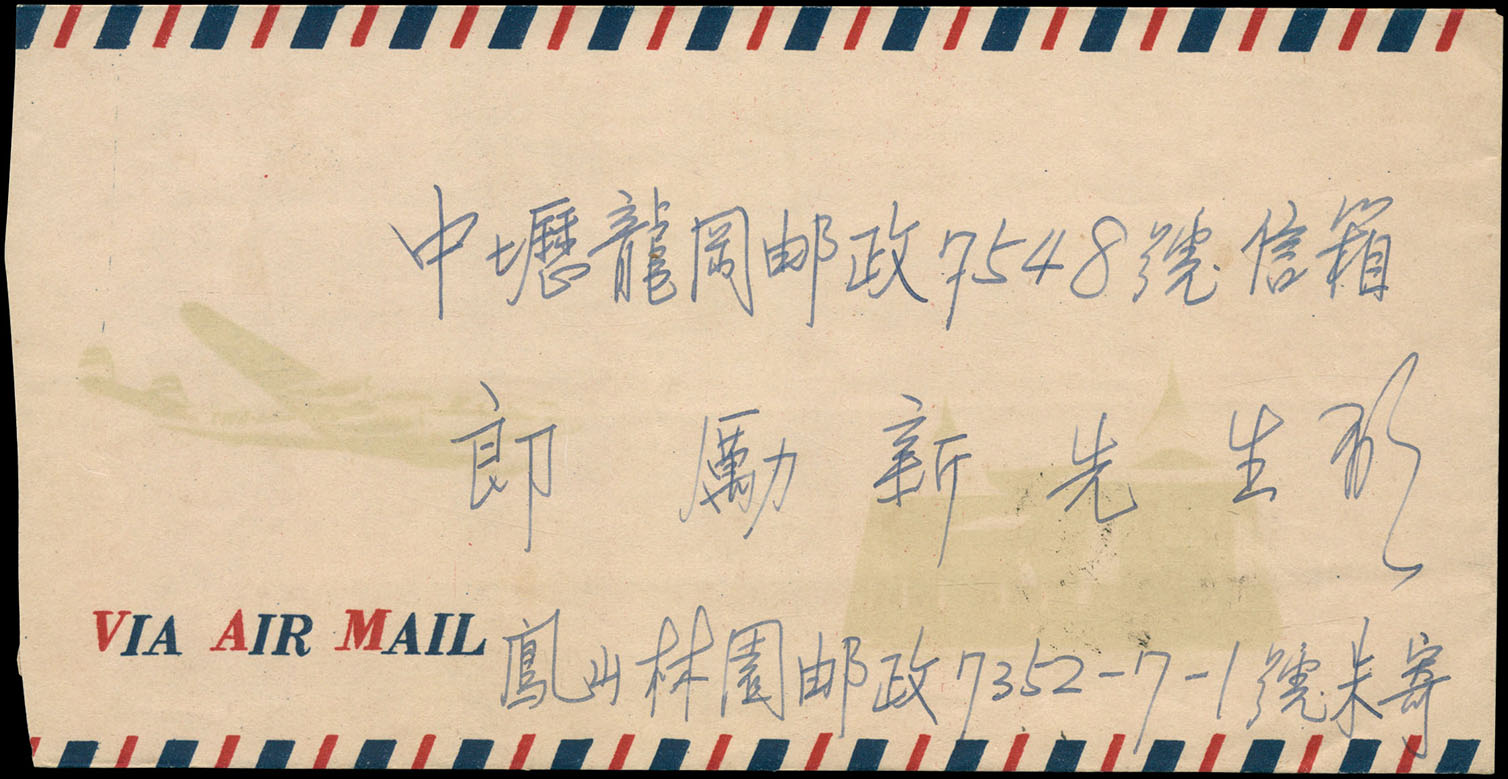 中壢龍岡邮政7548號信箱
郎勵新先生啟
VIA AIR MAIL
鳳山林園邮政7352-7-1號朱寄